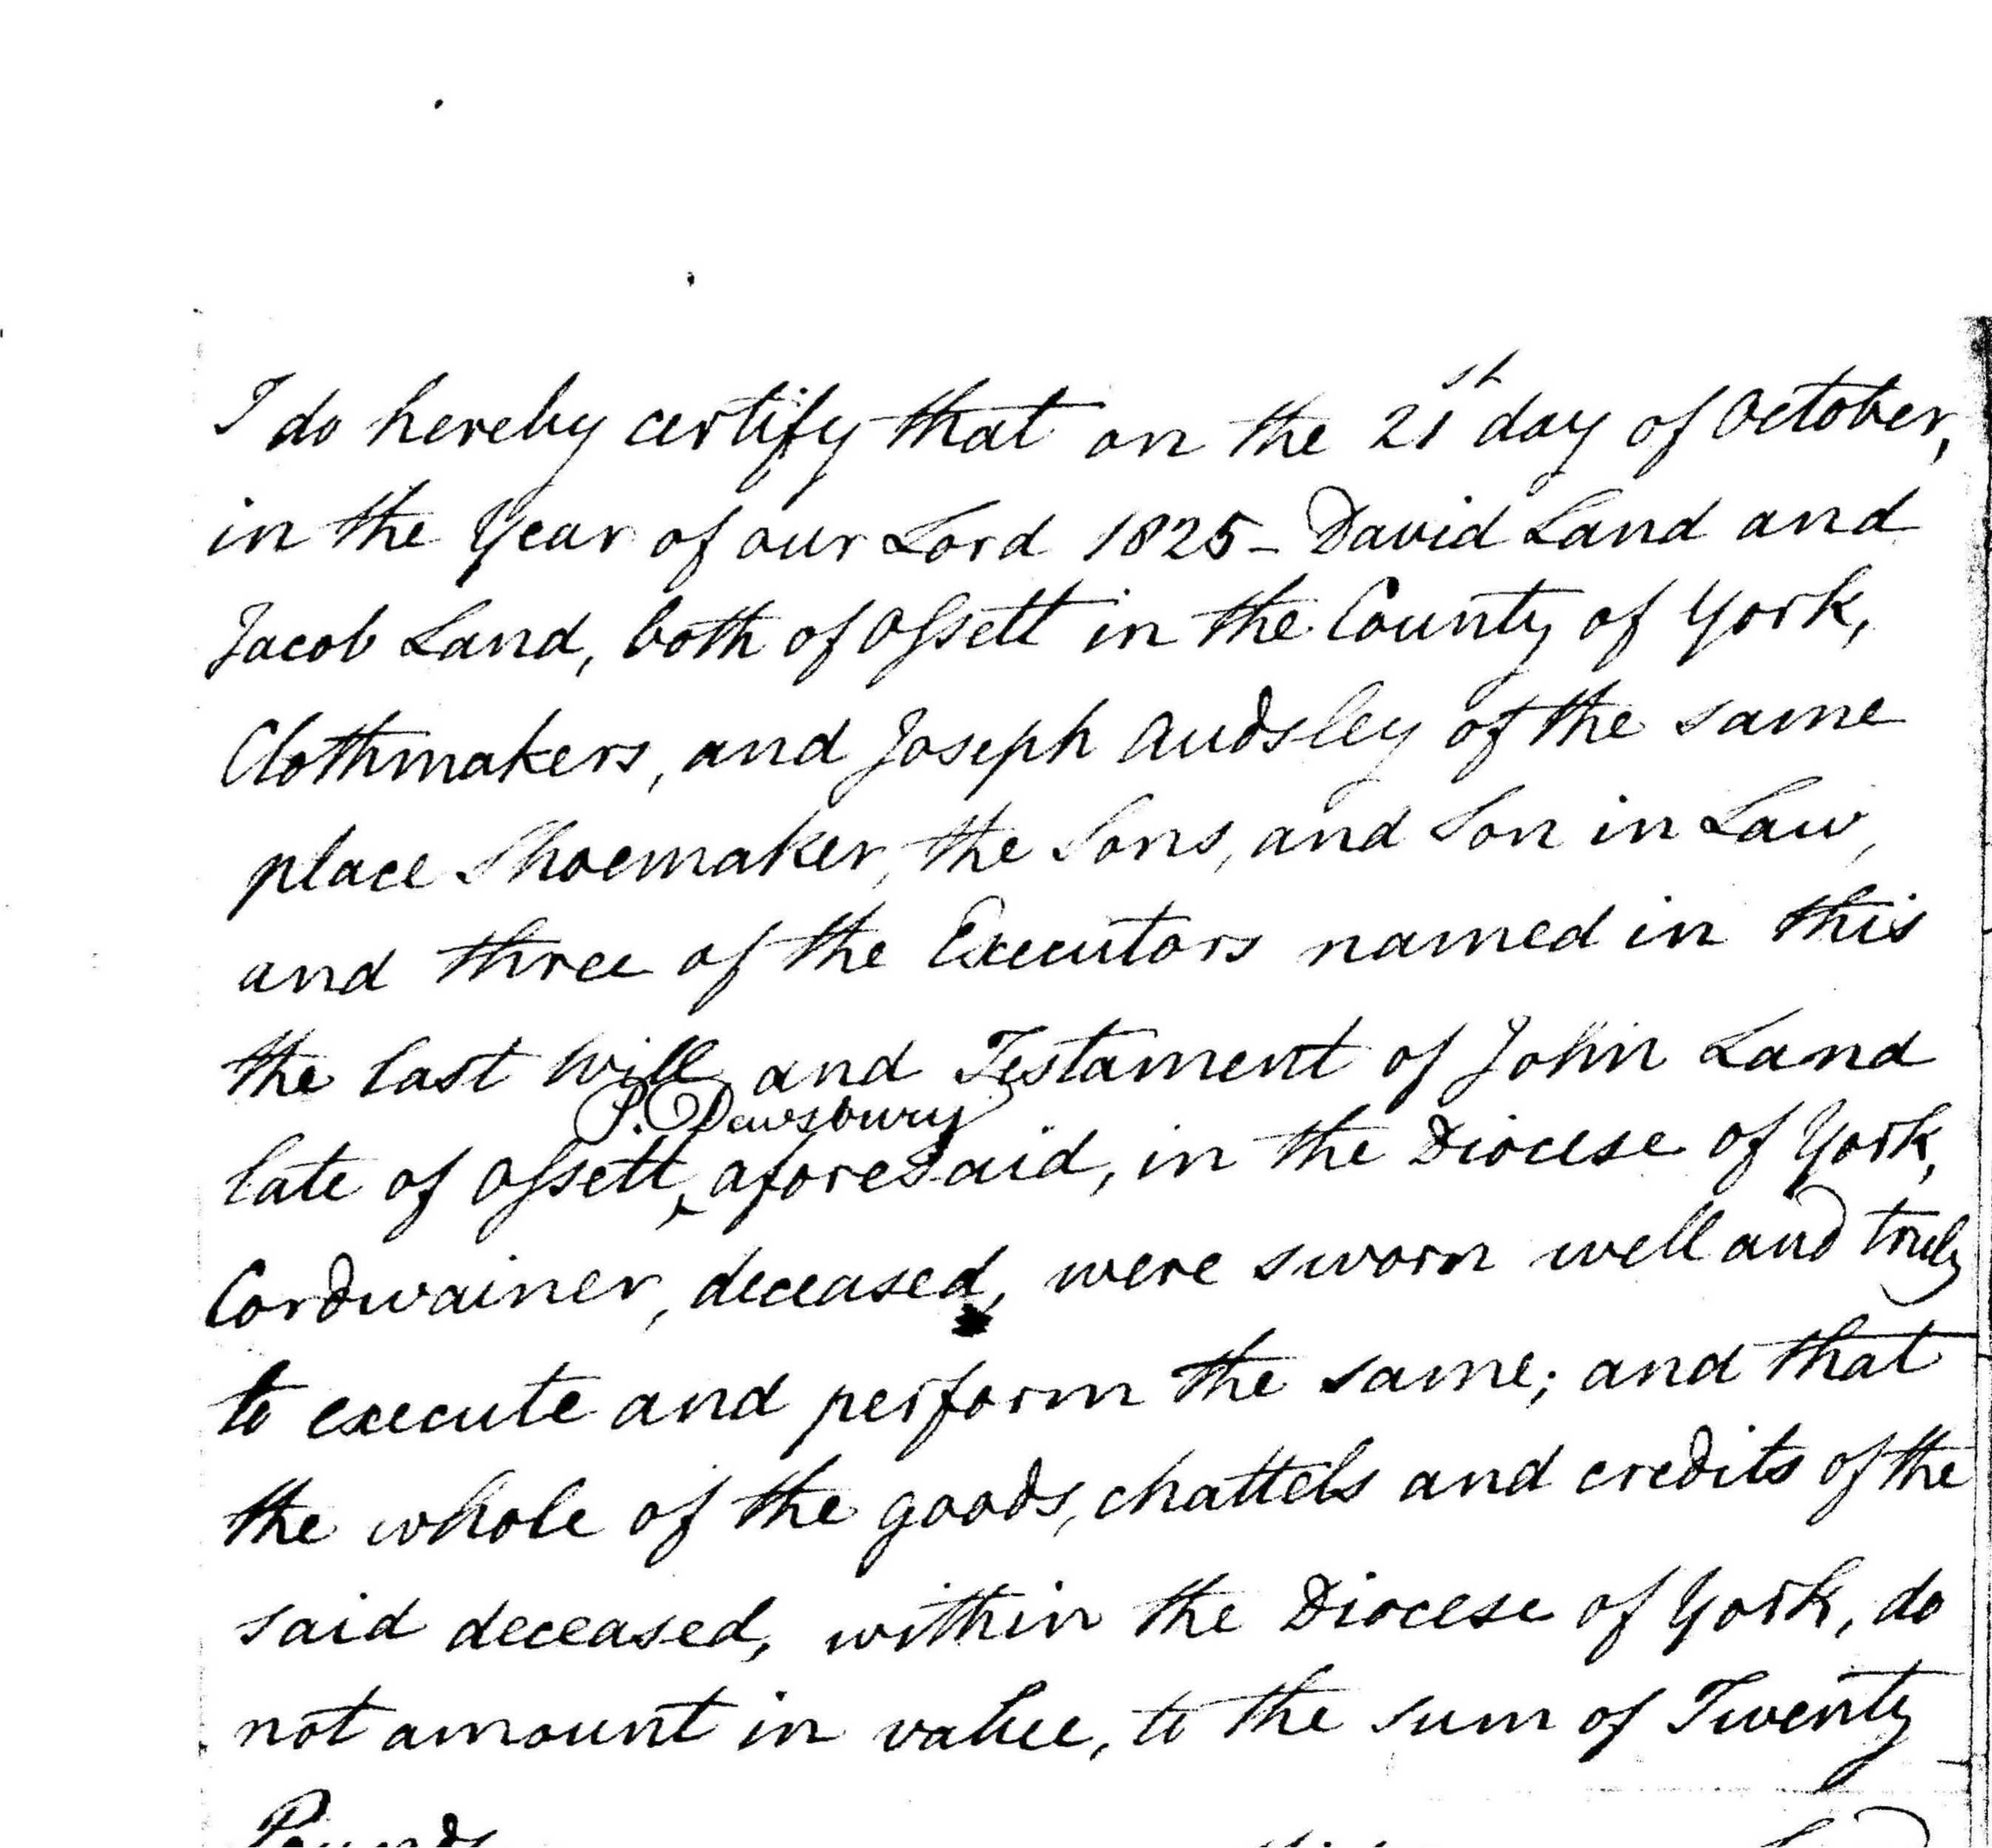 I do hereby certify that on the 21st day of October,
in the Year of our Lord 1825 - David Land and
Jacob Land, both of Ossett in the County of York,
Clothmakers, and Joseph Audsley of the same
place Shoemaker, the Sons, and Son in Law,
and three of the Executors named in this
the last Will and Testament of John Land
P. Dewsbury
late of Ossett, aforesaid, in the Diocese of York,
Cordwainer, deceased, were sworn well and truly
to execute and perform the same; and that
the whole of the goods, chattels and credits of the
said deceased, within the Diocese of York, do
not amount in value, to the sum of Twenty
Pounds